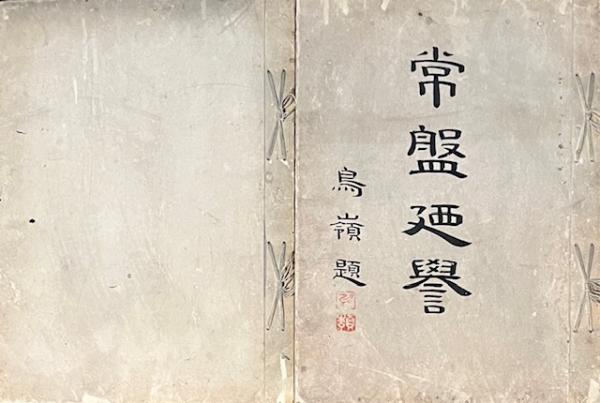 常盤廼譽
鳥嶺題